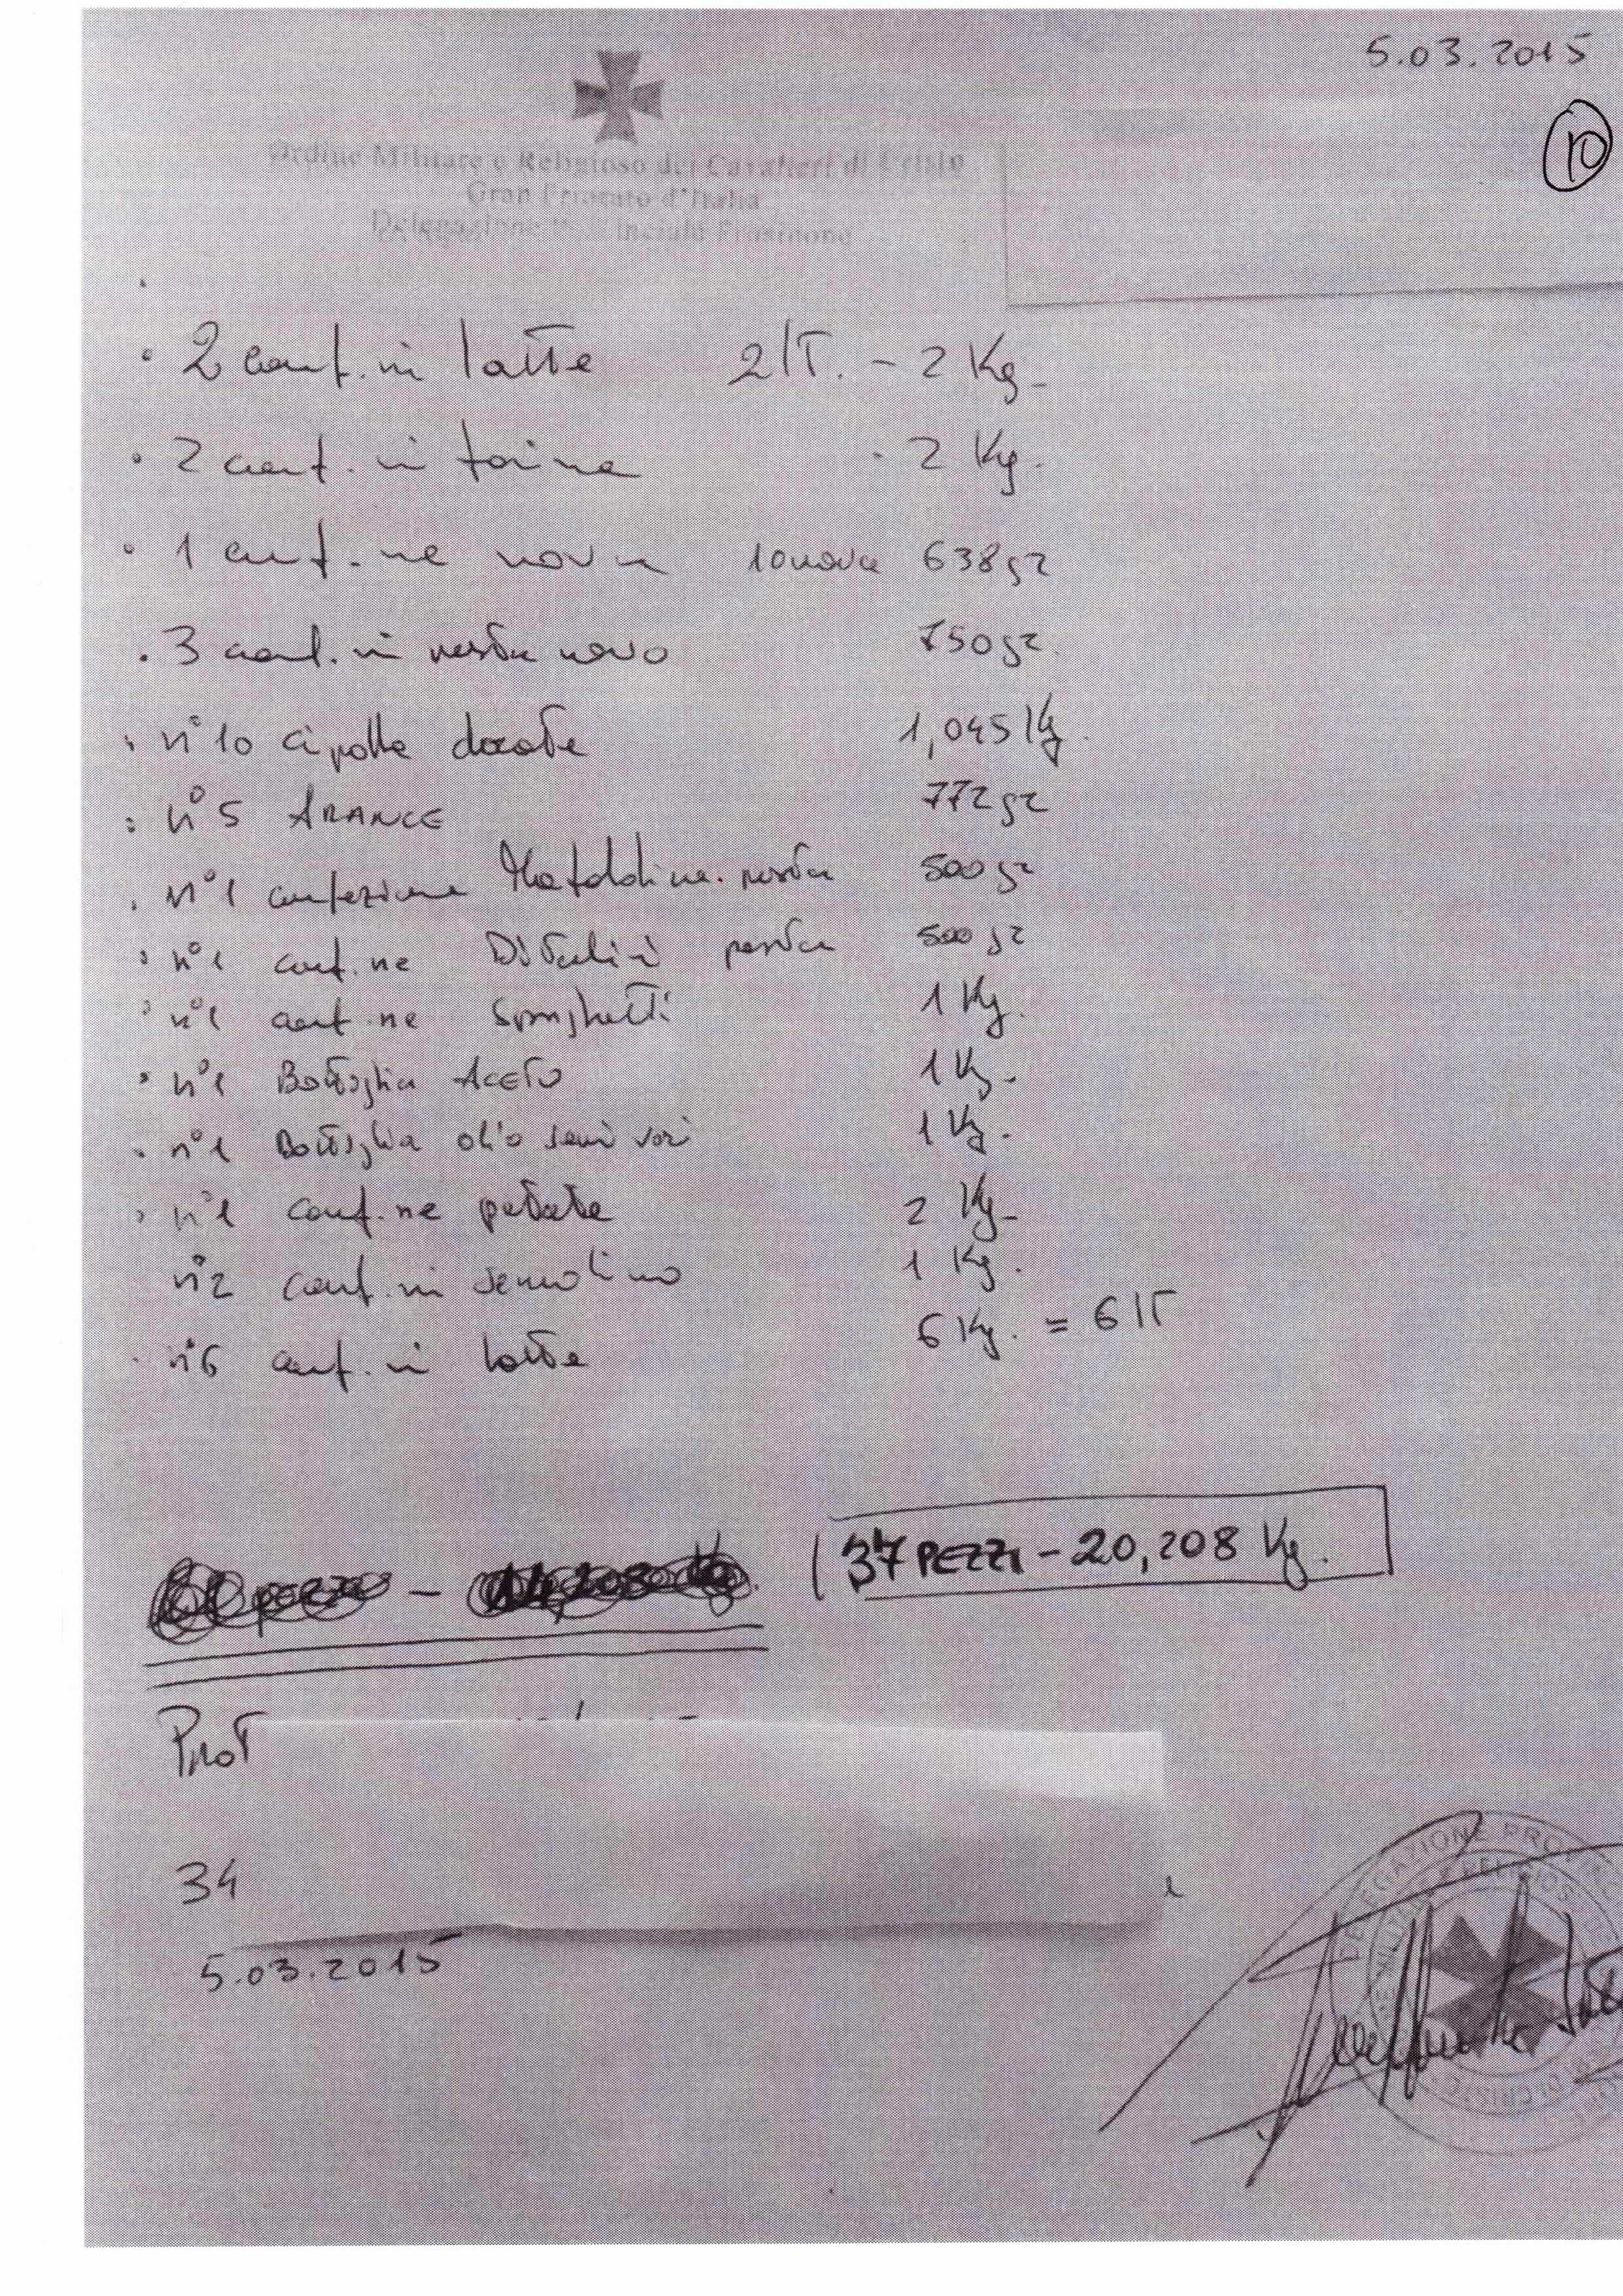 5.03.2015
10
Ordine Militare e Religioso dei Cavalieri di Cristo
Gran Priorato d'Italia
Delegazione Frosinone
2 conf.ni latte 2lT. - 2 Kg.
2 conf.ni farina - 2 Kg.
1 conf.ne uova 10 uova 638gr
3 conf.ni pasta uovo 750gr.
n° 10 cipolle dorate 1,045 Kg.
n° 5 ARANCE 772gr
n° 1 confezione Mafaldine pasta 500gr
n° 1 conf.ne Ditalini pasta 500gr
n° 1 conf.ne Spaghetti 1 Kg.
n° 1 Bottiglia Aceto 1 Kg.
n° 1 Bottiglia olio semi vari 1 Kg.
n° 1 conf.ne patate 2 Kg.
n° 2 conf.ni semolino 1 Kg.
n° 6 conf.ni latte 6 Kg. = 6 lT
37 PEZZI - 20,208 Kg.
Prot
34
5.03.2015
DELEGAZIONE